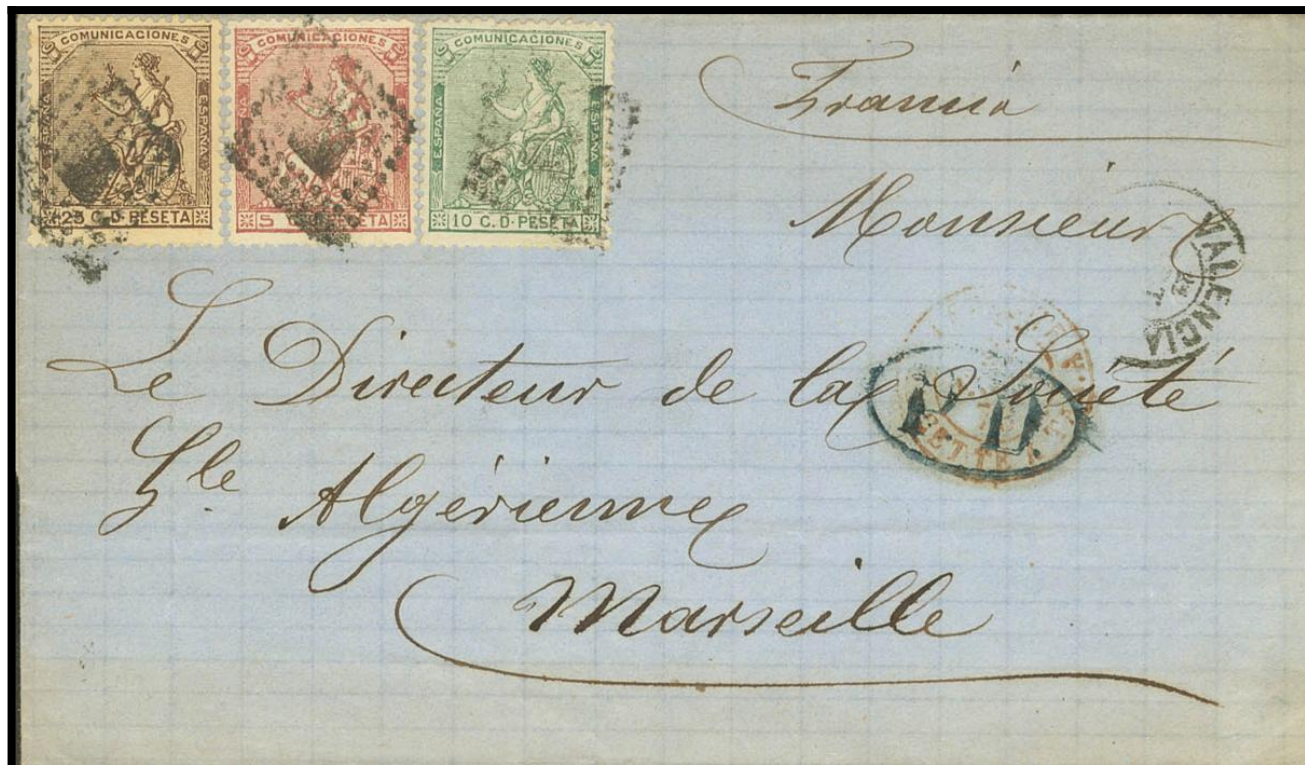 COMUNICACIONES
ESPAÑA
25 C. D. PESETA
COMUNICACIONES
ESPAÑA
5 C. D. PESETA
COMUNICACIONES
ESPAÑA ESPAÑA
10 C. D. PESETA
Francia
Monsieur
VALENCIA
Le Directeur de la Société
P. D.
Gle Algérienne
Marseille